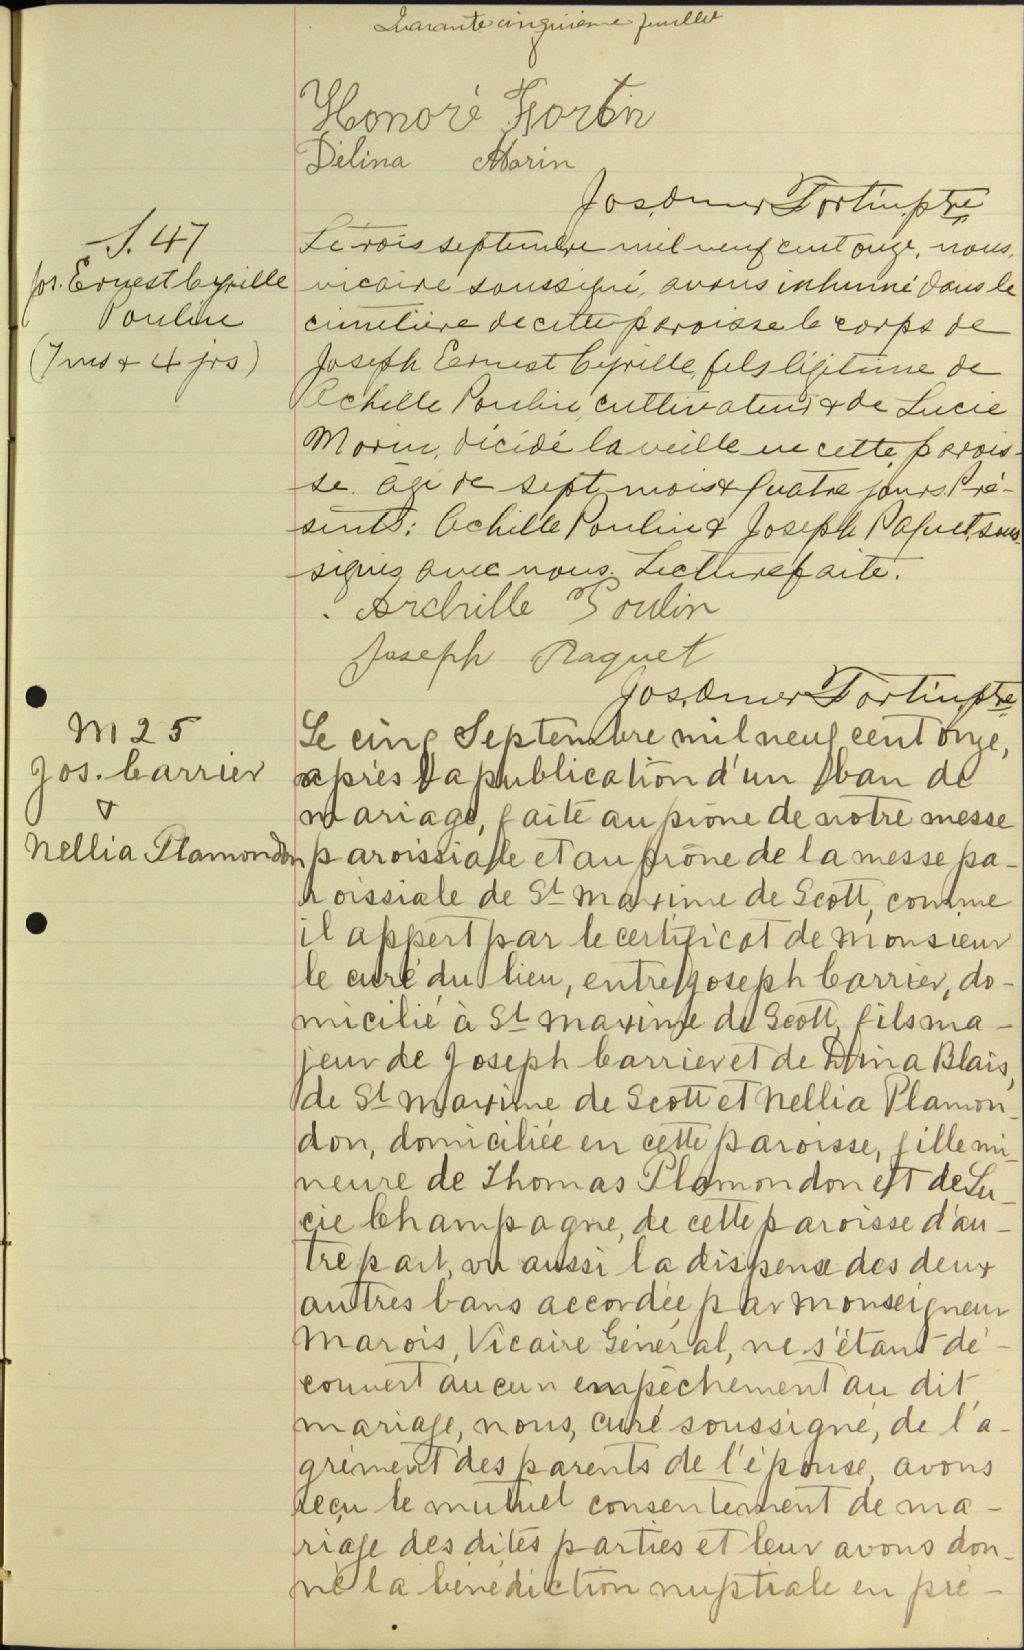 Quarante cinquième feuillet
Honoré Fortin
Délina Morin
Jos. Omer Fortin, ptre
S. 47
Jos. Ernest Cyrille
Poulin
(7 ms & 4 jrs)
Le trois septembre mil neuf cent onze, nous,
vicaire soussigné, avons inhumé dans le
cimetière de cette paroisse le corps de
Joseph Ernest Cyrille, fils légitime de
Achille Poulin, cultivateur & de Lucie
Morin, décédé la veille en cette parois-
se âgé de sept mois & quatre jours. Pré-
sents: Achille Poulin & Joseph Paquet, sous-
signés avec nous. Lecture faite.
Archille Poulin
Joseph Paquet
Jos. Omer Fortin, ptre
M 25
Jos. Carrier
&
Nellia Plamondon
Le cinq Septembre mil neuf cent onze,
après la publication d'un ban de
mariage, faite au prône de notre messe
paroissiale et au prône de la messe pa-
roissiale de St Maxime de Scott, comme
il appert par le certificat de Monsieur
le curé du lieu, entre Joseph Carrier, do-
micilié à St Maxime de Scott, fils ma-
jeur de Joseph Carrier et de Dina Blais,
de St Maxime de Scott et Nellia Plamon-
don, domiciliée en cette paroisse, fille mi-
neure de Thomas Plamondon et de Lu-
cie Champagne, de cette paroisse d'au-
tre part, vu aussi la dispense des deux
autres bans accordée par Monseigneur
Marois, Vicaire Général, ne s'étant dé-
couvert aucun empêchement au dit
mariage, nous, curé soussigné, de l'a-
grément des parents de l'épouse, avons
reçu le mutuel consentement de ma-
riage des dites parties et leur avons don-
né la bénédiction nuptiale en pré-